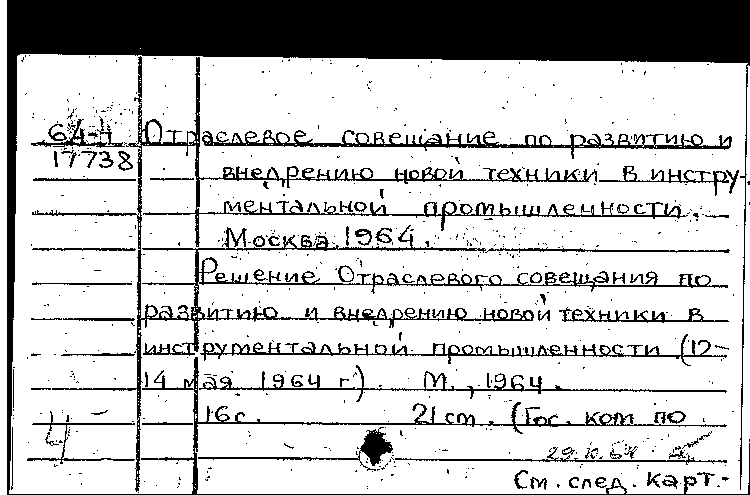 64-4 Отраслевое совещание по развитию и
17738 внедрению новой техники в инстру-
ментальной промышленности.
Москва. 1964.
Решение Отраслевого совещания по
развитию и внедрению новой техники в
инструментальной промышленности (12-
14 мая 1964 г). М., 1964.
16 с. 21 cm. (Гос. ком по
4 -
29.10.64
См. след. карт.-